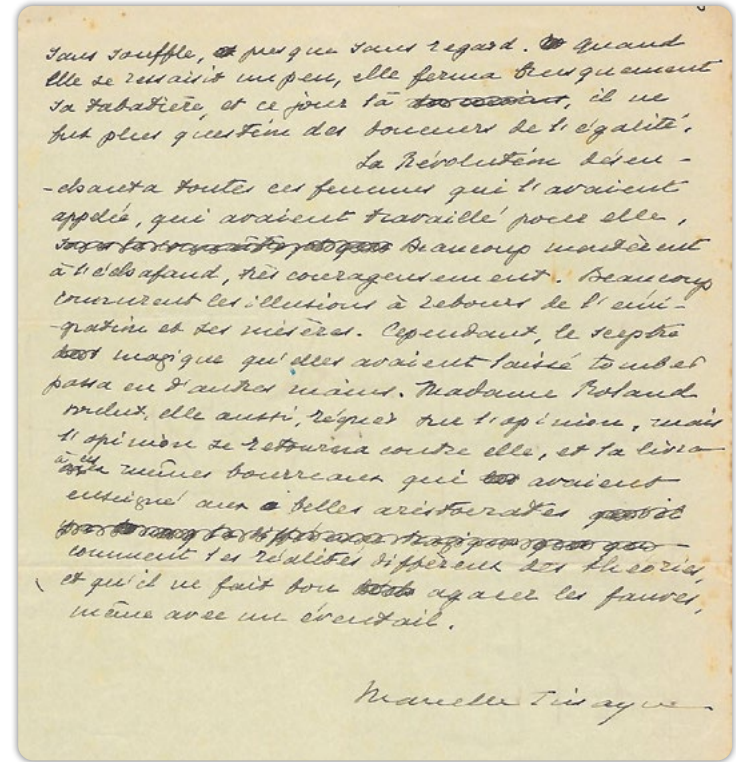 sans souffle, et presque sans regard. Quand
elle se ressaisit un peu, elle ferma brusquement
sa tabatière, et ce jour là, il ne
fut plus question des douceurs de l'égalité.
La Révolution désen-
-chanta toutes ces femmes qui l'avaient
appelée, qui avaient travaillé pour elle,
Beaucoup montèrent
à l'échafaud, très courageusement. Beaucoup
connurent les illusions à rebours de l'émi-
-gration et ses misères. Cependant, le sceptre
magique qu'elles avaient laissé tomber
passa en d'autres mains. Madame Roland
voulut, elle aussi, régner sur l'opinion, mais
l'opinion se retourna contre elle, et la livra
à ces mêmes bourreaux qui avaient
enseigné aux belles aristocrates
comment les réalités diffèrent des théories,
et qu'il ne fait bon agacer les fauves,
même avec un éventail.
Marcelle Tinayre